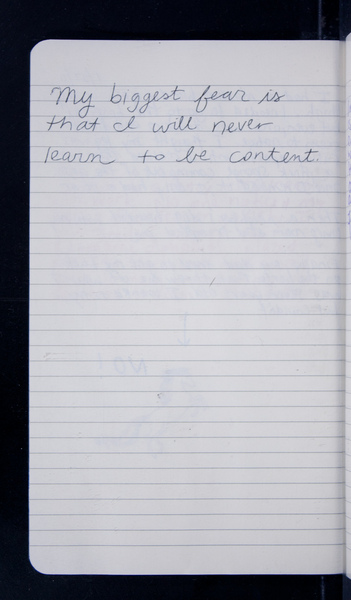 My biggest fear is
that I will never
learn to be content.